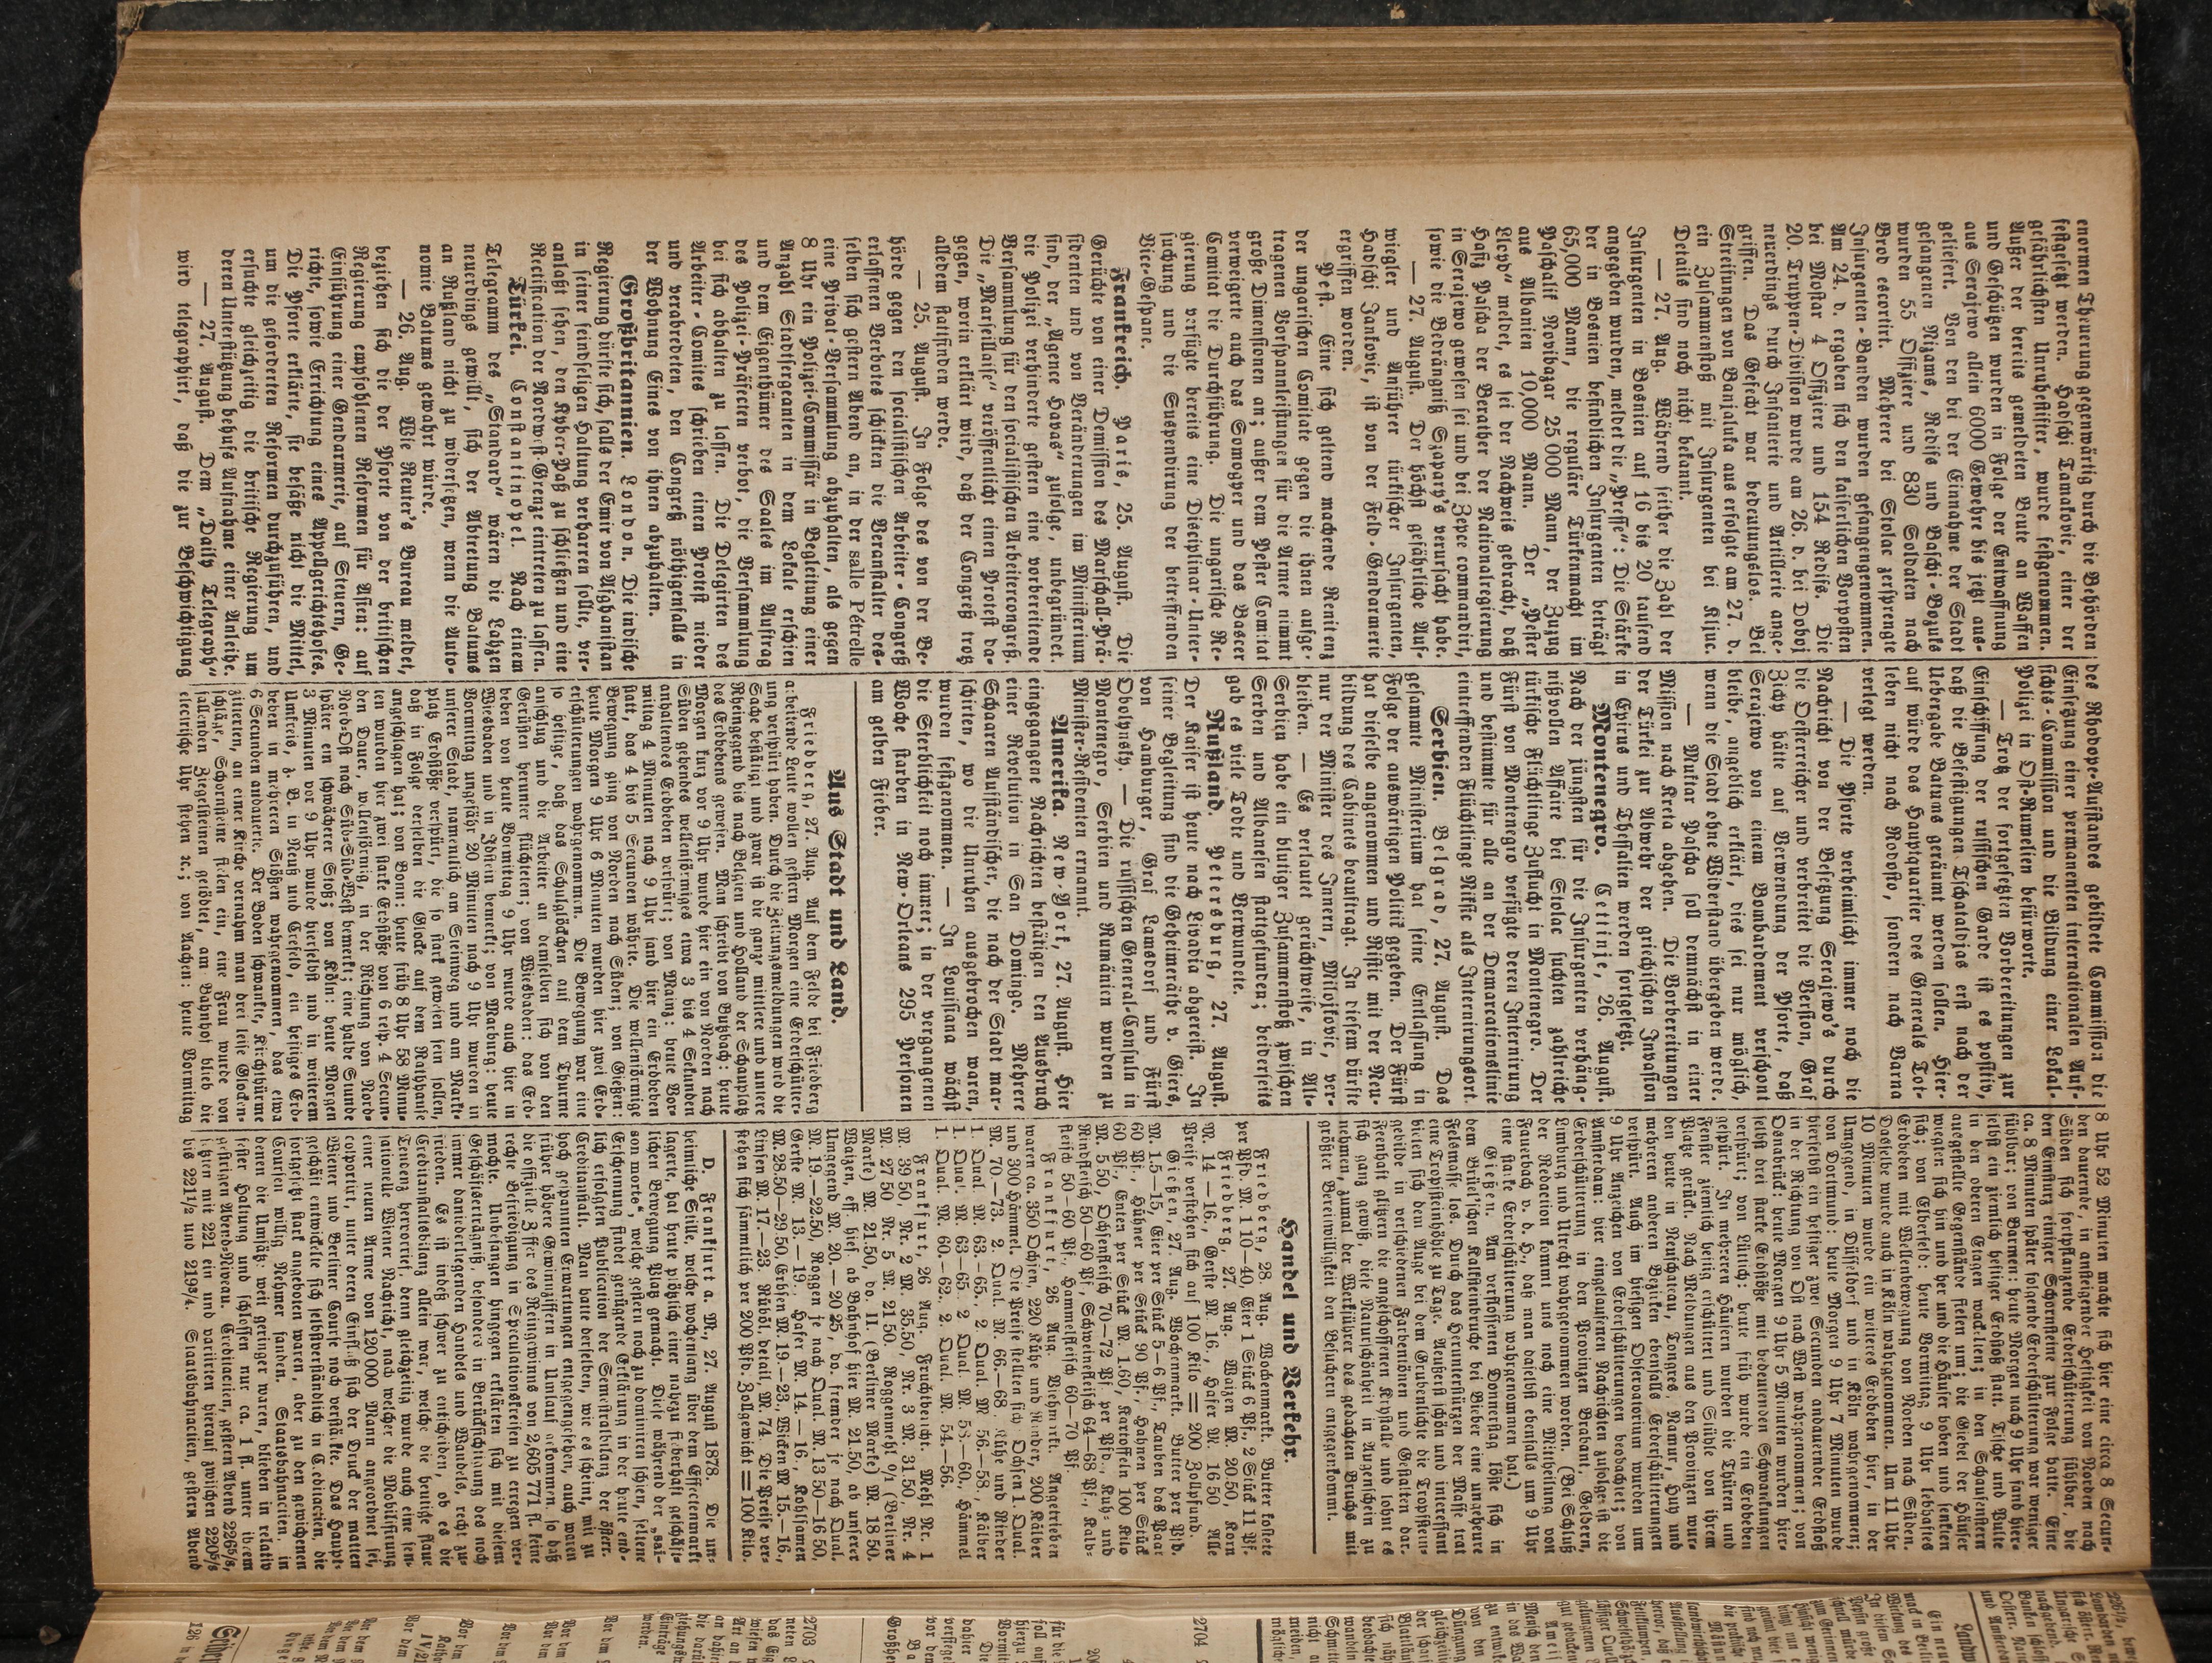 enormen Theuerung gegenwärtig durch die Behörden
festgesetzt werden. Hadschi Tamakovic, einer der
gefährlichsten Unruhestifter, wurde festgenommen.
Außer der bereits gemeldeten Beute an Waffen
und Geschützen wurden in Folge der Entwaffnung
aus Serajewo allein 6000 Gewehre bis jetzt aus-
geliefert. Von den bei der Einnahme der Stadt
gefangenen Nizams, Redifs und Baschi-Bozuks
wurden 55 Offiziere und 830 Soldaten nach
Brod escortirt. Mehrere bei Stolac zersprengte
Insurgenten-Banden wurden gefangengenommen.
Am 24. d. ergaben sich den kaiserlichen Vorposten
bei Mostar 4 Offiziere und 154 Redifs. Die
20. Truppen-Division wurde am 26. d. bei Doboj
neuerdings durch Infanterie und Artillerie ange-
griffen. Das Gefecht war bedeutungslos. Bei
Streifungen von Banjaluka aus erfolgte am 27. d.
ein Zusammenstoß mit Insurgenten bei Kljuc.
Details sind noch nicht bekannt.
— 27. Aug. Während seither die Zahl der
Insurgenten in Bosnien auf 16 bis 20 tausend
angegeben wurden, meldet die „Presse": Die Stärke
der in Bosnien befindlichen Insurgenten beträgt
65,000 Mann, die reguläre Türkenmacht im
Paschalik Novibazar 25 000 Mann, der Zuzug
aus Albanien 10,000 Mann. Der „Pester
Lloyd" meldet, es sei der Nachweis gebracht, daß
Hafiz Pascha der Berather der Nationalregierung
in Serajewo gewesen sei und bei Zepce commandirt,
sowie die Bedrängniß Szapary's verursacht habe.
— 27. August. Der höchst gefährliche Auf-
wiegler und Anführer türkischer Insurgenten,
Hadschi Jankovic, ist von der Feld-Gendarmerie
ergriffen worden.
Pest. Eine sich geltend machende Renitenz
der ungarischen Comitate gegen die ihnen aufge-
tragenen Vorspannleistungen für die Armee nimmt
große Dimensionen an; außer dem Pester Comitat
verweigerte auch das Somogyer und das Baeser
Comitat die Durchführung. Die ungarische Re-
gierung verfügte bereits eine Disciplinar-Unter-
suchung und die Suspendirung der betreffenden
Vice-Gespane.
Frankreich. Paris, 25. August. Die
Gerüchte von einer Demission des Marschall-Prä-
sidenten und von Veränderungen im Ministerium
sind, der „Agence Havas" zufolge, unbegründet.
die Polizei verhinderte gestern eine vorbereitende
Versammlung für den socialistischen Arbeitercongreß.
Die „Marseillaise" veröffentlicht einen Protest da-
gegen, worin erklärt wird, daß der Congreß trotz
alledem stattfinden werde.
— 25. August. In Folge des von der Be-
hörde gegen den socialistischen Arbeiter-Congreß
erlassenen Verbotes schickten die Veranstalter des-
selben sich gestern Abend an, in der salle Pétrelle
eine Privat-Versammlung abzuhalten, als gegen
8 Uhr ein Polizei-Commissär in Begleitung einer
Anzahl Stadtsergeanten in dem Lokale erschien
und dem Eigenthümer des Saales im Auftrag
des Polizei-Präfecten verbot, die Versammlung
bei sich abhalten zu lassen. Die Delegirten des
Arbeiter-Comites schrieben einen Protest nieder
und verabredeten, den Congreß nöthigenfalls in
der Wohnung Eines von ihnen abzuhalten.
Großbritannien. London. Die indische
Regierung dürfte sich, falls der Emir von Afghanistan
in seiner feindseligen Haltung verharren sollte, ver-
anlaßt sehen, den Kyber-Paß zu schließen und eine
Rectification der Nordwest-Grenze eintreten zu lassen.
Türkei. Constantinopel. Nach einem
Telegramm des „Standard" wären die Lahzen
neuerdings gewillt, sich der Abtretung Batums
an Rußland nicht zu widersetzen, wenn die Auto-
nomie Batums gewahrt würde.
— 26. Aug. Wie Reuter's Bureau meldet,
beziehen sich die der Pforte von der britischen
Regierung empfohlenen Reformen für Asien: auf
Einführung einer Gendarmerie, auf Steuern, Ge-
richte, sowie Errichtung eines Appellgerichtshofes.
Die Pforte erklärte, sie besäße nicht die Mittel,
um die geforderten Reformen durchzuführen, und
ersuchte gleichzeitig die britische Regierung um
deren Unterstützung behufs Aufnahme einer Anleihe.
— 27. August. Dem „Daily Telegraph"
wird telegraphirt, daß die zur Beschwichtigung
des Rhodope-Aufstandes gebildete Commission die
Einsetzung einer permanenten internationalen Auf-
sichts-Commission und die Bildung einer Lokal-
Polizei in Ost-Rumelien befürworte.
— Trotz der fortgesetzten Vorbereitungen zur
Einschiffung der russischen Garde ist es positiv,
daß die Befestigungen Tschataldjas erst nach der
Uebergabe Batums geräumt werden sollen. Hier-
auf würde das Hauptquartier des Generals Tot-
leben nicht nach Rodosto, sondern nach Varna
verlegt werden.
— Die Pforte verheimlicht immer noch die
Nachricht von der Besetzung Serajewo's durch
die Oesterreicher und verbreitet die Version, Graf
Zichy hätte auf Verwendung der Pforte, daß
Serajewo von einem Bombardement verschont
bleibe, angeblich erklärt, dies sei nur möglich,
wenn die Stadt ohne Widerstand übergeben werde.
— Muktar Pascha soll demnächst in einer
Mission nach Kreta abgehen. Die Vorbereitungen
der Türkei zur Abwehr der griechischen Invasion
in Epirus und Thessalien werden fortgesetzt.
Montenegro. Cettinje, 26. August.
Nach der jüngsten für die Insurgenten verhäng-
nißvollen Affaire bei Stolac suchten zahlreiche
türkische Flüchtlinge Zuflucht in Montenegro. Der
Fürst von Montenegro verfügte deren Internirung
und bestimmte für alle an der Demarcationslinie
eintreffenden Flüchtlinge Niksic als Internirungsort.
Serbien. Belgrad, 27. August. Das
gesammte Ministerium hat seine Entlassung in
Folge der auswärtigen Politik gegeben. Der Fürst
hat dieselbe angenommen und Ristic mit der Neu-
bildung des Cabinets beauftragt. In diesem dürfte
nur der Minister des Innern, Milojkovic, ver-
bleiben. — Es verlautet gerüchtweise, in Alt-
Serbien habe ein blutiger Zusammenstoß zwischen
Serben und Albanesen stattgefunden; beiderseits
gab es viele Todte und Verwundete.
Rußland. Petersburg, 27. August.
Der Kaiser ist heute nach Livadia abgereist. In
seiner Begleitung sind die Geheimeräthe v. Giers,
von Hamburger, Graf Lamsdorf und Fürst
Obolynsky. — Die russischen General-Consuln in
Montenegro, Serbien und Rumänien wurden zu
Minister-Residenten ernannt.
Amerika. New-York, 27. August. Hier
eingegangene Nachrichten bestätigen den Ausbruch
einer Revolution in San Domingo. Mehrere
Schaaren Aufständischer, die nach der Stadt mar-
schirten, wo die Unruhen ausgebrochen waren,
wurden festgenommen. — In Louisiana wächst
die Sterblichkeit noch immer; in der vergangenen
Woche starben in New-Orleans 295 Personen
am gelben Fieber.
Aus Stadt und Land.
Friedberg, 27. Aug. Auf dem Felde bei Friedberg
arbeitende Leute wollen gestern Morgen eine Erderschütter-
ung verspürt haben. Durch die Zeitungsmeldungen wird die
Sache bestätigt und zwar ist die ganze mittlere und untere
Rheingegend bis nach Belgien und Holland der Schauplatz
des Erdbebens gewesen. Man schreibt von Butzbach: heute
Morgen kurz vor 9 Uhr wurde hier ein von Norden nach
Süden gehendes wellenförmiges etwa 3 bis 4 Sekunden
anhaltendes Erdbeben verspürt; von Mainz: heute Vor-
mittag 4 Minuten nach 9 Uhr fand hier ein Erdbeben
statt, das 4 bis 5 Secunden währte. Die wellenförmige
Bewegung ging von Norden nach Süden; von Gießen:
heute Morgen 9 Uhr 6 Minuten wurden hier zwei Erd-
erschütterungen wahrgenommen. Die Bewegung war eine
so heftige, daß das Schlagglöckchen auf dem Thurme
anschlug und die Arbeiter an demselben sich von den
Gerüsten herunter flüchteten; von Wiesbaden: das Erd-
beben von heute Vormittag 9 Uhr wurde auch hier in
Wiesbaden und in Idstein bemerkt; von Marburg: heute
Vormittag ungefähr 20 Minuten nach 9 Uhr wurden in
unserer Stadt, namentlich am Steinweg und am Markt-
platz Erdstöße verspürt, die so stark gewesen sein sollen,
daß in Folge derselben die Glocke auf dem Rathhause
angeschlagen hat; von Bonn: heute früh 8 Uhr 58 Minu-
ten wurden hier zwei starke Erdstöße von 6 resp. 4 Secun-
den Dauer, wellenförmig, in der Richtung von Nord-
Nord-Ost nach Süd-Süd-West bemerkt; eine halbe Stunde
später ein schwächerer Stoß; von Köln: heute Morgen
3 Minuten vor 9 Uhr wurde hierselbst und in weiterem
Umkreis, z. B. in Neuß und Crefeld, ein heftiges Erd-
beben in mehreren Stößen wahrgenommen, das etwa
6 Secunden andauerte. Der Boden schwankte, Kirchthürme
zitterten, an einer Kirche vernahm man drei leise Glocken-
schläge, Schornsteine fielen ein, eine Frau wurde von
fallenden Ziegelsteinen getödtet, am Bahnhof blieb die
electrische Uhr stehen ꝛc.; von Aachen: heute Vormittag
8 Uhr 52 Minuten machte sich hier eine circa 8 Secun-
den dauernde, in ansteigender Heftigkeit von Norden nach
Süden sich fortpflanzende Erderschütterung fühlbar, die
den Einsturz einiger Schornsteine zur Folge hatte. Eine
ca. 8 Minuten später folgende Erderschütterung war weniger
fühlbar; von Barmen: heute Morgen nach 9 Uhr fand hier-
selbst ein ziemlich heftiger Erdstoß statt. Tische und Pulte
in den oberen Etagen wackelten; in den Schaufenstern
ausgestellte Gegenstände fielen um; die Giebel der Häuser
wiegten sich hin und her und die Häuser hoben und senkten
sich; von Elberfeld: heute Vormittag 9 Uhr lebhaftes
Erdbeben mit Wellenbewegung von Norden nach Süden.
Dasselbe wurde auch in Köln wahrgenommen. Um 11 Uhr
10 Minuten wurde ein weiteres Erdbeben hier, in der
Umgegend, in Düsseldorf und in Köln wahrgenommen;
von Dortmund: heute Morgen 9 Uhr 7 Minuten wurde
hierselbst ein heftiger zwei Secunden andauernder Erdstoß
in der Richtung von Ost nach West wahrgenommen; von
Osnabrück: heute Morgen 9 Uhr 5 Minuten wurden hier-
selbst drei starke Erdstöße mit bedeutenden Schwankungen
verspürt; von Lüttich: heute früh wurde ein Erdbeben
gespürt. In mehreren Häusern wurden die Thüren und
Fenster ziemlich heftig erschüttert und Stühle von ihrem
Platze gerückt. Nach Meldungen aus den Provinzen wur-
den heute in Neufchateau, Tongres, Namur, Huy und
mehreren anderen Bezirken ebenfalls Erderschütterungen
verspürt. Auch im hiesigen Observatorium wurden um
9 Uhr Anzeichen von Erderschütterungen beobachtet; von
Amsterdam: hier eingelaufenen Nachrichten zufolge ist die
Erderschütterung in den Provinzen Brabant, Geldern,
Limburg und Utrecht wahrgenommen worden. (Bei Schluß
der Redaction kommt uns noch eine Mittheilung von
Fauerbach v. d. H., daß man daselbst ebenfalls um 9 Uhr
eine starke Erderschütterung wahrgenommen hat.)
Gießen. Am verflossenen Donnerstag löste sich in
dem Brüel'schen Kalksteinbruche bei Bieber eine ungeheure
Felsmasse los. Durch das Herunterstürzen der Masse trat
eine Tropfsteinhöhle zu Tage. Aeußerst schön und interessant
bieten sich dem Auge bei dem Grubenlichte die Tropfstein-
gebilde in verschiedenen Farbentönen und Gestalten dar.
Feenhaft glitzern die angeschossenen Krystalle und lohnt es
sich ganz gewiß, diese Naturschönheit in Augenschein zu
nehmen zumal der Werkführer des gedachten Bruchs mit
größter Bereitwilligkeit den Besuchern entgegenkommt.
Handel und Verkehr.
Friedberg, 28. Aug. Wochenmarkt. Butter kostete
per Pfd. M. 1 10—40, Eier 1 Stück 6 Pf., 2 Stück 11 Pf.
Friedberg, 27. Aug. Waizen M. 20.50, Korn
M. 14—16, Gerste M. 16., Hafer M. 16 50 Alle
Preise verstehen sich auf 100 Kilo = 200 Zollpfund.
Gießen, 27. Aug. Wochenmarkt. Butter per Pfd.
M. 1.5—15, Eier per Stück 5—6 Pf., Tauben das Paar
60 Pf., Hühner per Stück 90 Pf., Hahnen per Stück
60 Pf., Enten per Stück M. 1.60, Kartoffeln 100 Kilo
M. 5.50, Ochsenfleisch 70—72 Pf. per Pfd., Kuh- und
Rindfleisch 50—60 Pf., Schweinefleisch 64—68 Pf., Kalb-
fleisch 50—60 Pf., Hammelfleisch 60—70 Pf.
Frankfurt, 26. Aug. Viehmarkt. Angetrieben
waren ca. 350 Ochsen, 220 Kühe und Rinder, 200 Kälber
und 300 Hämmel. Die Preise stellten sich: Ochsen 1. Qual.
M. 70—73. 2. Qual. M. 66.—68. Kühe und Rinder
1. Qual. M. 63.—65., 2. Qual. M. 56.—58., Kälber
1. Qual. M. 63—65. 2 Qual. M. 58.—60., Hämmel
1. Qual. M. 60.—62. 2. Qual. M. 54.—56.
Frankfurt, 26 Aug. Fruchtbericht. Mehl Nr. 1
M. 39 50, Nr. 2 M. 35.50, Nr. 3 M. 31.50, Nr. 4
M. 27 50 Nr. 5 M. 21 50. Roggenmehl 0/1 (Berliner
Marke) M. 21.50, do. II. (Berliner Marke) M. 18 50.
Waizen, eff. hies. ab Bahnhof hier M. 21.50, ab unserer
Umgegend M. 20.—20 25, do. fremder je nach Qual.
M. 19—22.50, Roggen je nach Qual. M. 13 50—16 50,
Gerste M. 13—19., Hafer M. 14.—16, Kohlsamen
M. 28.50—29.50, Erbsen M. 19.—23., Wicken M. 15.—16.,
Linsen M. 17.—23. Rüböl detail. M. 74. Die Preise ver-
stehen sich sämmtlich per 200 Pfd. Zollgewicht = 100 Kilo.
D. Frankfurt a. M., 27. August 1878. Die un-
heimliche Stille, welche wochenlang über dem Effectenmarkt
lagerte, hat heute plötzlich einer nahezu fieberhaft geschäft-
lichen Bewegung Platz gemacht. Diese während der „sai-
son morte", welche gestern noch zu dominiren schien, seltene
Erscheinung findet genügende Erklärung in der heute end-
lich erfolgten Publication der Semestralbilanz der österr.
Creditanstalt. Man hatte derselben, wie es scheint, mit zu
hoch gespannten Erwartungen entgegengesehen, auch waren
früher höhere Gewinnziffern in Umlauf gekommen, so daß
die offizielle Ziffer des Reingewinns von 2,605 771 fl. keine
rechte Befriedigung in Speculationskreisen zu erregen ver-
mochte. Unbefangen hingegen erklärten sich mit diesem
Geschäftserträgniß, besonders in Berücksichtigung des noch
immer daniederliegenden Handels und Wandels, recht zu-
frieden. Es ist indeß schwer zu entscheiden, ob es die
Creditanstaltsbilanz allein war, welche die heutige flaue
Tendenz hervorrief, denn gleichzeitig wurde auch eine sen-
sationelle Wiener Nachricht, nach welcher die Mobilisirung
einer neuen Armee von 120 000 Mann angeordnet sei,
coportirt, unter deren Einfluß sich der Druck der matten
Wiener und Berliner Course noch verstärkte. Das Haupt-
geschäft entwickelte sich selbstverständlich in Creditactien, die
fortgesetzt stark angeboten waren, aber zu den gewichenen
Coursen willig Nehmer fanden. Staatsbahnactien, in
denen die Umsätze weit geringer waren, blieben in relativ
fester Haltung und schlossen nur ca. 1 fl. unter ihrem
gestrigen Abend-Niveau. Creditactien, gestern Abend 226⅝,
setzten mit 221 ein und variirten hierauf zwischen 220⅝
bis 221½ und 219¾. Staatsbahnactien, gestern Abend
2703
2704